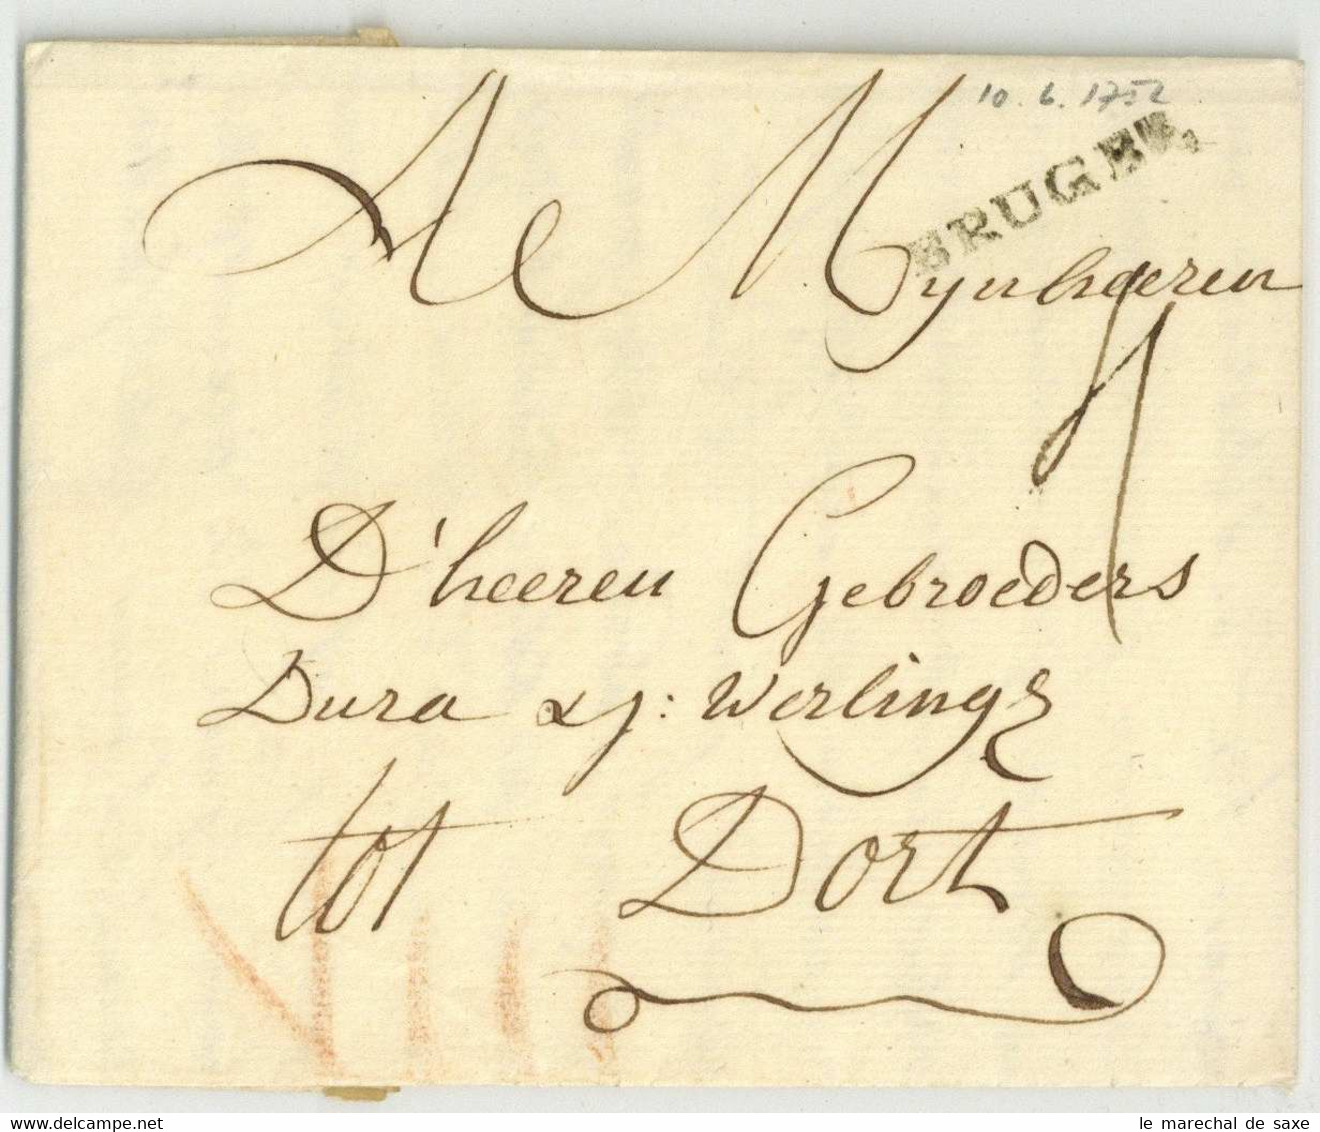 10. 6. 1752
BRUGES
A Mynheeren
D'heeren Gebroeders
Dura & J: Werlings
tot Dort
delcampe.net
le marechal de saxe